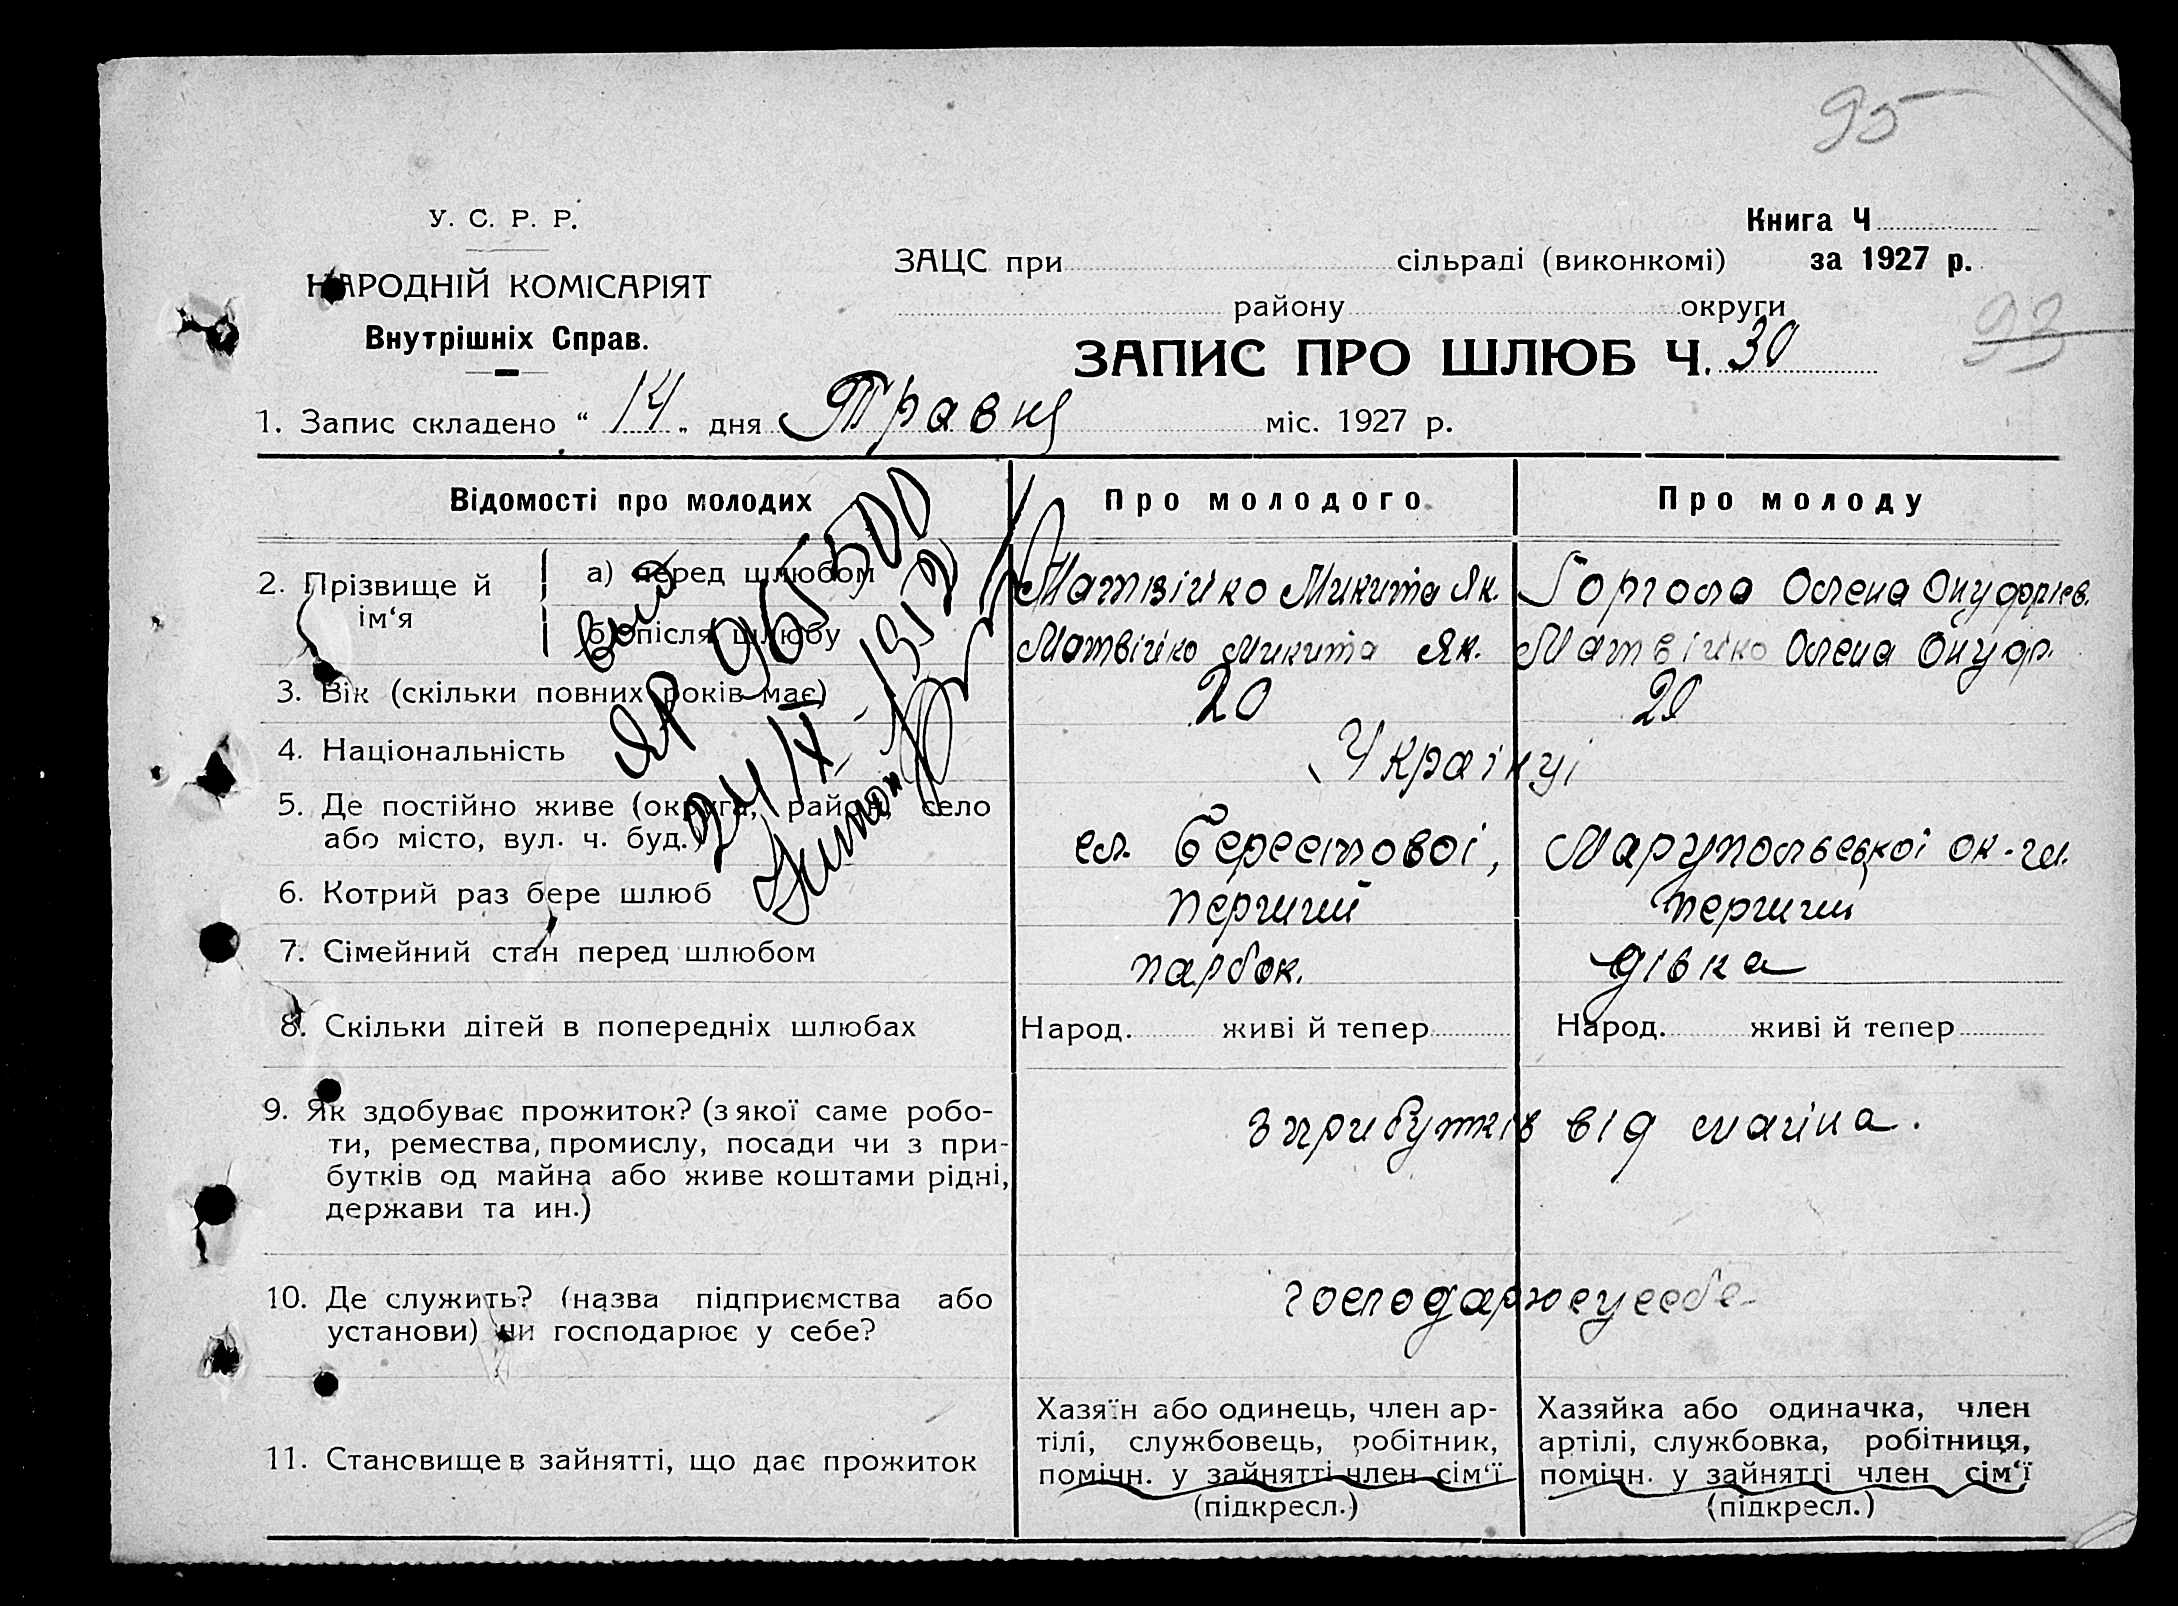 95
У. С. Р. Р.
НАРОДНІЙ КОМІСАРІЯТ
Внутрішніх Справ.
Книга Ч
ЗАЦС при сільраді (виконкомі) за 1927 р.
району округи
93
ЗАПИС ПРО ШЛЮБ Ч. 30
1. Запис складено „ 14 „ дня Травня міс. 1927 р.
Відомості про молодих Про молодого Про молоду
2. Прізвище й ім‘я
а) перед шлюбом Матвійко Микита Як. Горгола Олена Онуфрієв.
б) після шлюбу Матвійко Микита Як. Матвійко Олена Онуфр.
3. Вік (скільки повних років має) 20 20
4. Національність Українці
5. Де постійно живе (округа, район, село
або місто, вул. ч. буд.) сл. Берестової, Маріупольської ок-ги.
6. Котрий раз бере шлюб перший перший
7. Сімейний стан перед шлюбом парбок. дівка
8. Скільки дітей в попередніх шлюбах Народ. живі й тепер Народ. живі й тепер
9. Як здобуває прожиток? (з якої саме робо-
ти, ремества, промислу, посади чи з при-
бутків од майна або живе коштами рідні,
держави та ин.)
з прибутків від майна.
10. Де служить? (назва підприємства або
установи) чи господарює у себе?
господарює у себе
11. Становище в зайнятті, що дає прожиток
Хазяїн або одинець, член ар-
тілі, службовець, робітник,
помічн. у зайнятті член сім‘ї
(підкресл.)
Хазяйка або одиначка, член
артілі, службовка, робітниця,
помічн. у зайнятті член сім‘ї
(підкресл.)
ЯР 965500